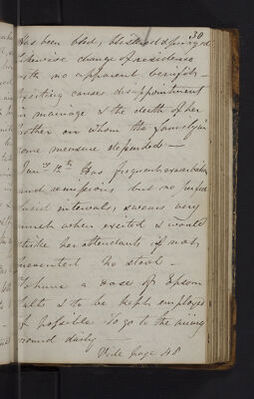 30
has been bled, blistered & purged
likewise change of residence
with no apparent benefit —
exciting causes disappointment
in marriage & the death of her
Mother on whom the family in
some measure depended —
12th Has frequent exacerbations
and remissions but no
lucid intervals, swears very
much when excited & would
strike her attendants if not
prevented No stool —
To have a dose of Epsom
Salts & to be kept employed
if possible To go to the airing
ground daily
Vide page 48